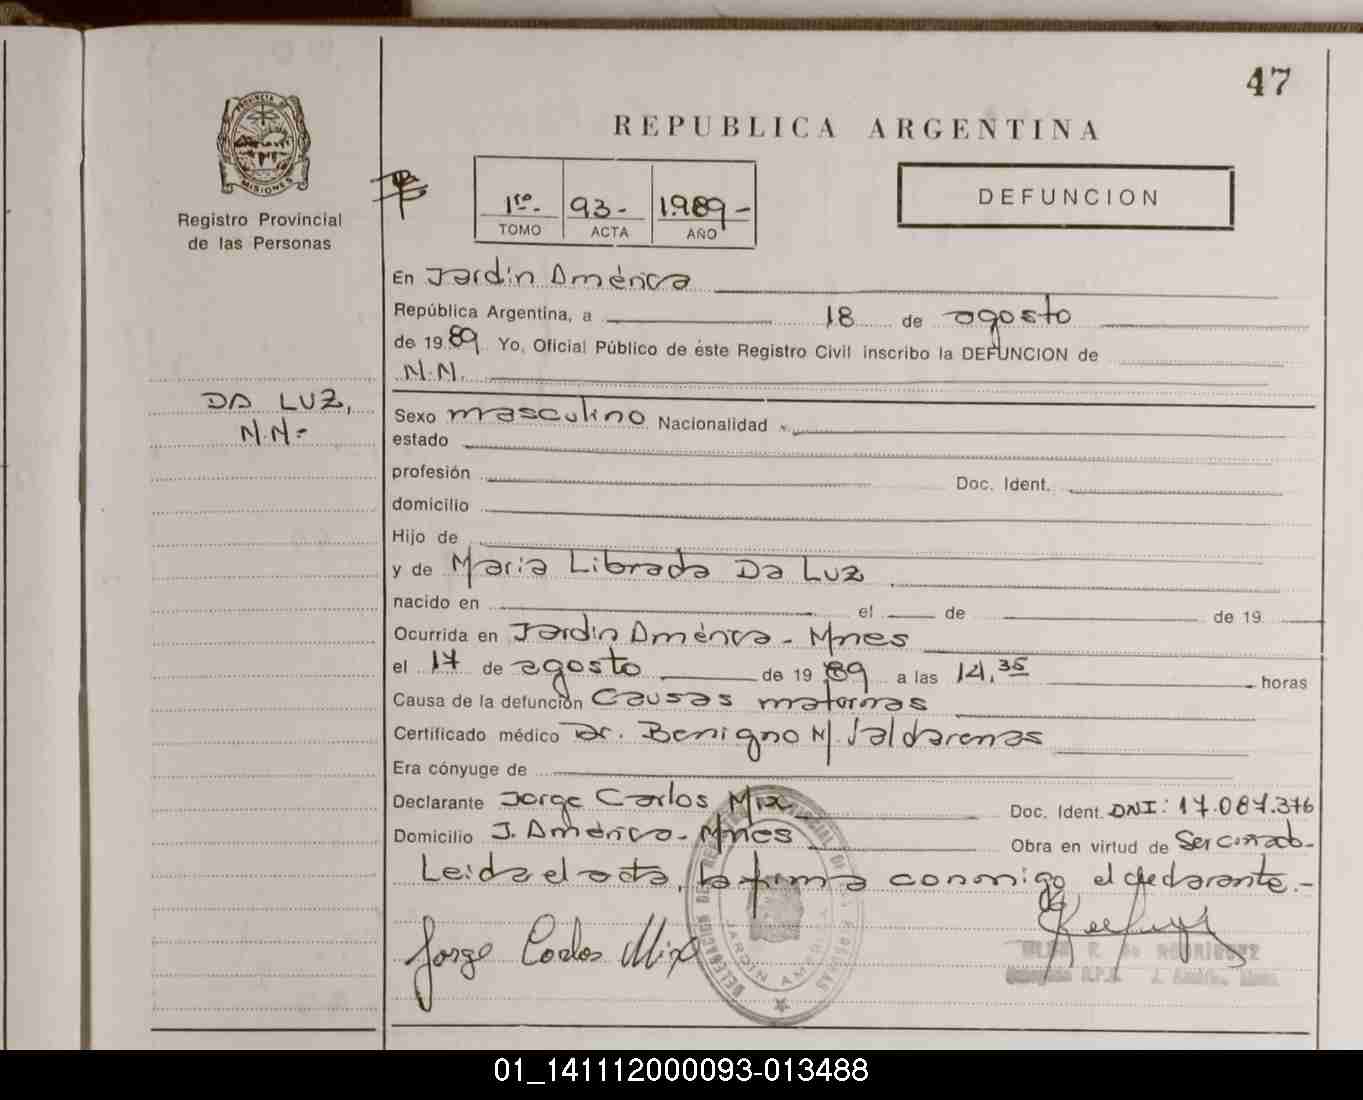 47
REPUBLICA ARGENTINA
PROVINCIA DE
MISIONES
Registro Provincial
de las Personas
1ro.- 93- 1989-
TOMO ACTA AÑO
DEFUNCION
En Jardín América
República Argentina, a 18 de agosto
de 1989 Yo, Oficial Público de éste Registro Civil inscribo la DEFUNCION de
N.N.
DA LUZ,
N.N.-
Sexo masculino Nacionalidad
estado
profesión Doc. Ident.
domicilio
Hijo de
y de Maria Librada Da Luz
nacido en el de de 19
Ocurrida en Jardín América - Mnes
el 17 de agosto de 1989 a las 14,35 horas
Causa de la defunción Causas maternas
Certificado médico Dr. Benigno M. Valdarenas
Era cónyuge de
Declarante Jorge Carlos Mix Doc. Ident. DNI: 17.087.376
Domicilio J. América - Mnes Obra en virtud de ser
Leida el acta, la firma conmigo el declarante.-
Jorge Carlos Mix
JARDIN AMERICA
R. de RODRIGUEZ
01_141112000093-013488